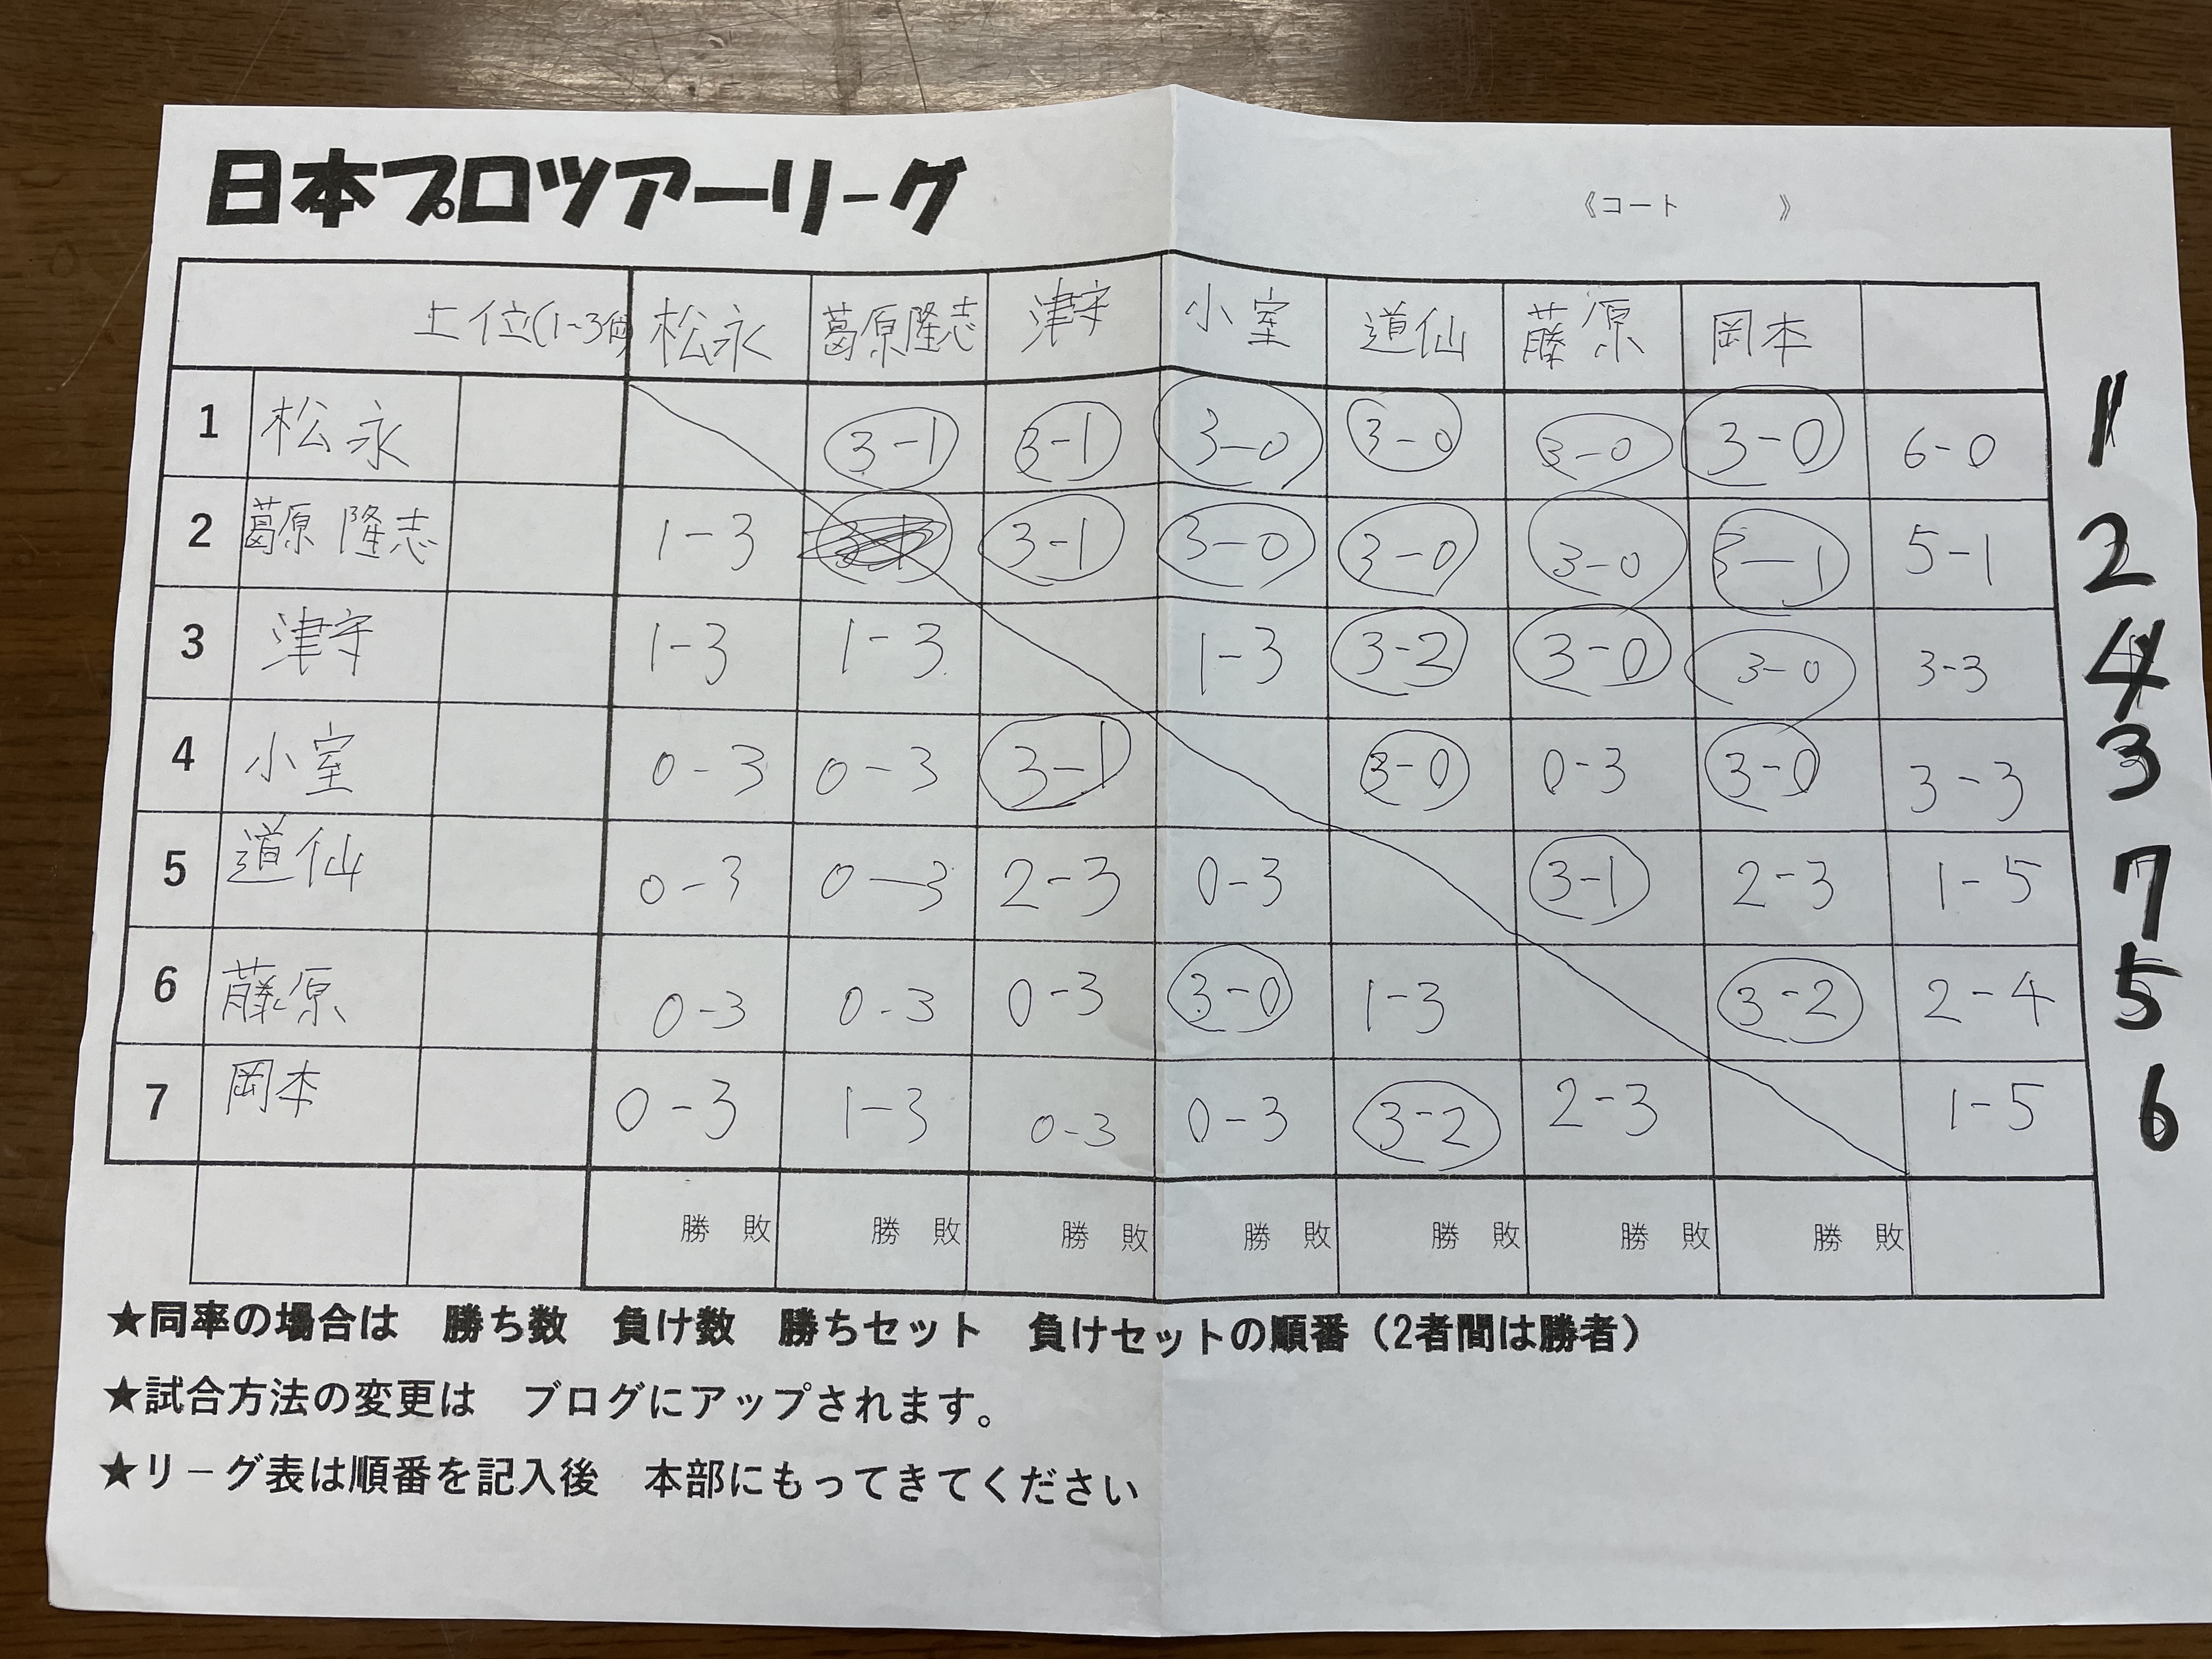 日本プロツアーリーグ
《コート　　　》
上位(1-3位) 松永 葛原隆志 津守 小室 道仙 藤原 岡本
1 松永 3-1 3-1 3-0 3-0 3-0 3-0 6-0 1
2 葛原 隆志 1-3 3-1 3-0 3-0 3-0 3-1 5-1 2
3 津守 1-3 1-3 1-3 3-2 3-0 3-0 3-3 4
4 小室 0-3 0-3 3-1 3-0 0-3 3-0 3-3 3
5 道仙 0-3 0-3 2-3 0-3 3-1 2-3 1-5 7
6 藤原 0-3 0-3 0-3 3-0 1-3 3-2 2-4 5
7 岡本 0-3 1-3 0-3 0-3 3-2 2-3 1-5 6
勝 敗 勝 敗 勝 敗 勝 敗 勝 敗 勝 敗 勝 敗
★同率の場合は　勝ち数　負け数　勝ちセット　負けセットの順番（2者間は勝者）
★試合方法の変更は　ブログにアップされます。
★リーグ表は順番を記入後　本部にもってきてください